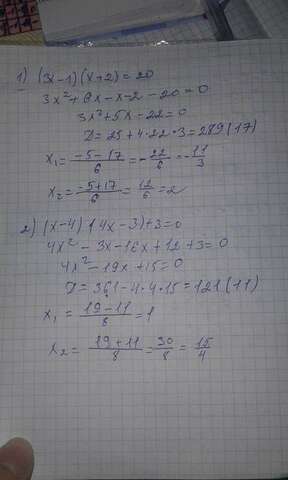 1) (3x-1)(x+2)=20
3x²+6x-x-2-20=0
3x²+5x-22=0
D=25+4·22·3=289(17)
x₁=(-5-17)/6=-22/6=-11/3
x₂=(-5+17)/6=12/6=2
2) (x-4)(4x-3)+3=0
4x²-3x-16x+12+3=0
4x²-19x+15=0
D=361-4·4·15=121(11)
x₁=(19-11)/8=1
x₂=(19+11)/8=30/8=15/4